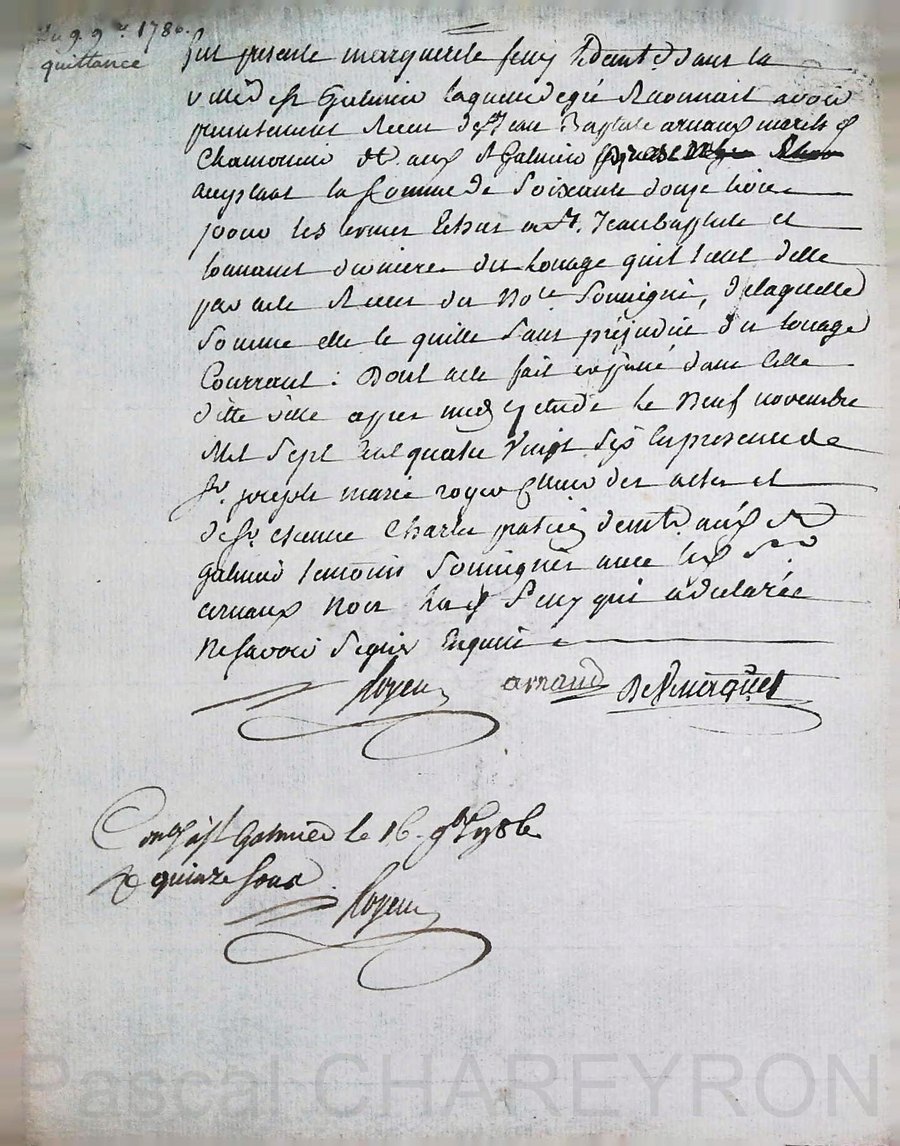 du 9 9re 1786.
quittance
fut presente marguerite feuy residente dans la
ville de st Galmier laquelle de gré reconnait avoir
presentement recu de sr Jean Baptiste arnaux marchd
Chamoisier dt aud st Galmier
acceptant la somme de soixante douze livres
pour les termes echus a st. Jean Baptiste et
toussaint derniers du louage quil tient delle
par acte recu du nore soussigné, de laquelle
somme elle le quitte sans préjudice du louage
Courrant : Dont acte fait et passé dans cette
ditte ville apres midy etude le neuf novembre
Mil sept cent quatre vingt six en presence de
sr. joseph marie royer commis des actes et
de sr etienne Charles demt aud st
galmier temoins soussignés avec led sr
arnaux non lad feuy qui a declarée
ne savoir signer Enquise
Royer arnaud
Conlé a st Galmier le 16. 9bre 1786
R quinze sous
Royer
Pascal CHAREYRON